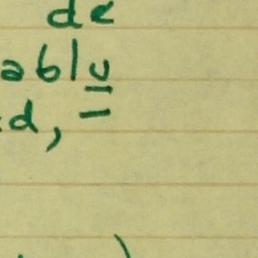 de
ably
d, –